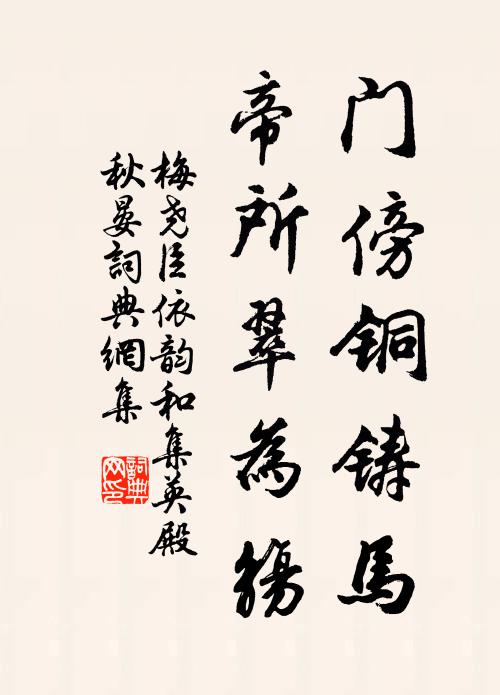 门傍铜铸馬
帝所翠為觞
梅尧臣依韵和集英殿
秋晏詞典網集
詞典网印